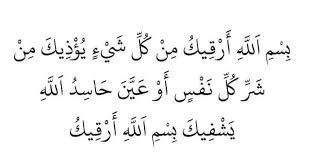 بِسْمِ اَللَّهِ أَرْقِيكَ مِنْ كُلِّ شَيْءٍ يُؤْذِيكَ مِنْ
شَرِّ كُلِّ نَفْسٍ أَوْ عَيَّنَ حَاسِدُ اَللَّهِ
يَشْفِيكَ بِسْمِ اَللَّهِ أَرْقِيكُ